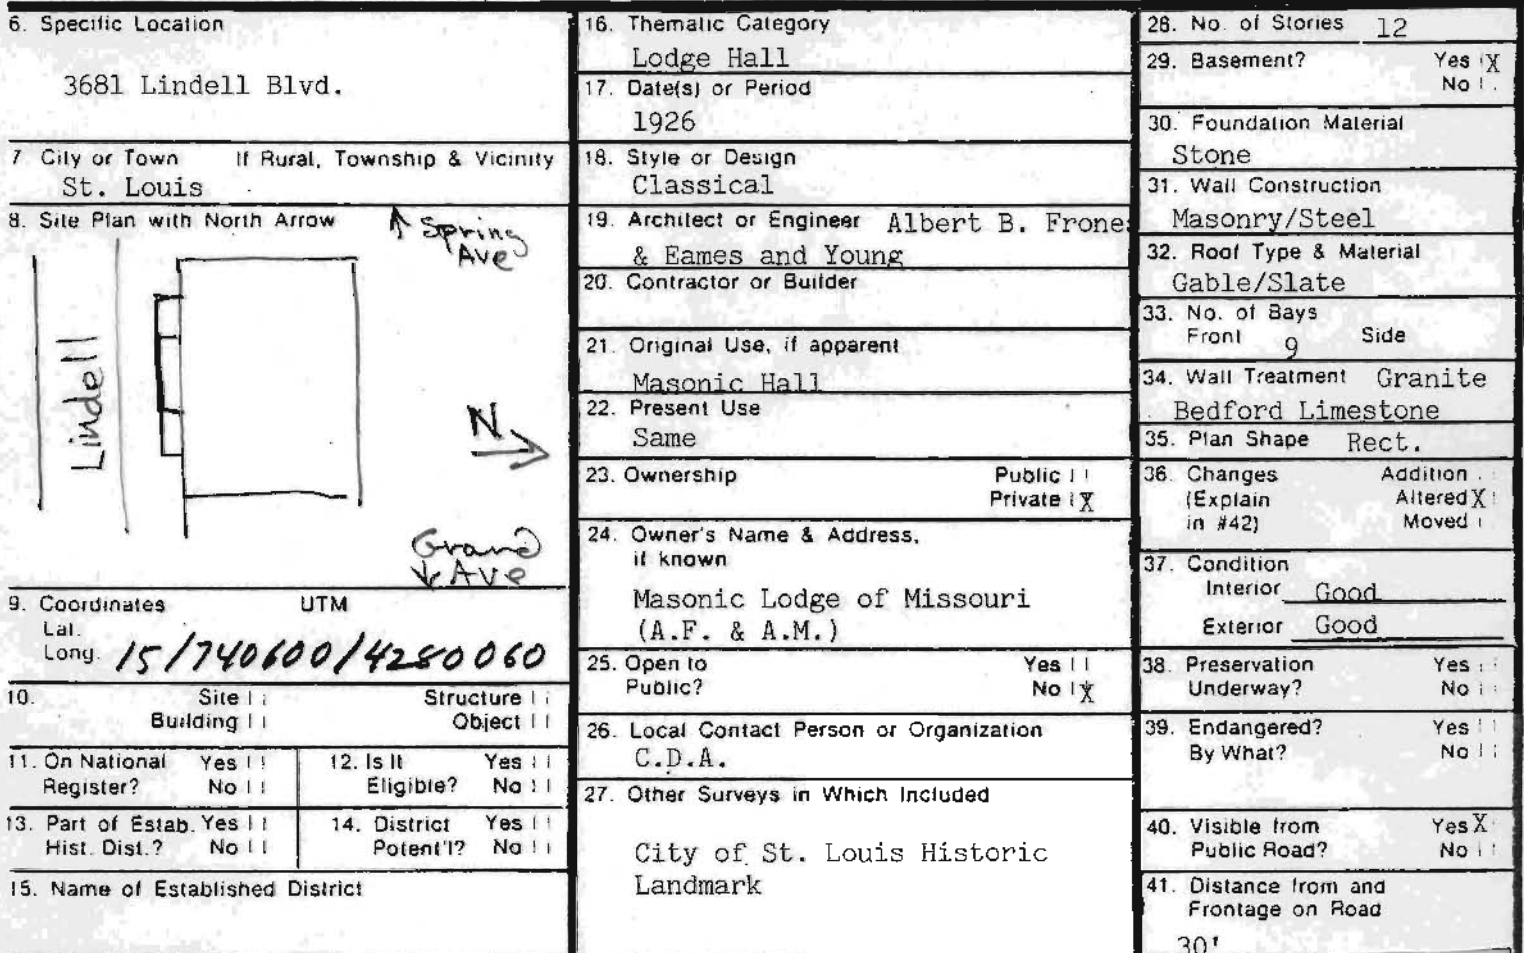 6. Specific Location
3681 Lindell Blvd.
7 City or Town If Rural, Township & Vicinity
St. Louis
8. Site Plan with North Arrow
Spring
Ave
Lindell
N
Grand
Ave
9. Coordinates UTM
Lat.
Long. 15/740600/4280060
10. Site Structure
Building Object
11. On National Yes
Register? No
12. Is It Yes
Eligible? No
13. Part of Estab. Yes
Hist. Dist.? No
14. District Yes
Potent'l? No
15. Name of Established District
16. Thematic Category
Lodge Hall
17. Date(s) or Period
1926
18. Style or Design
Classical
19. Architect or Engineer Albert B. Frone
& Eames and Young
20. Contractor or Builder
21. Original Use, if apparent
Masonic Hall
22. Present Use
Same
23. Ownership Public
Private X
24. Owner's Name & Address,
if known
Masonic Lodge of Missouri
(A.F. & A.M.)
25. Open to Yes
Public? No X
26. Local Contact Person or Organization
C.D.A.
27. Other Surveys in Which Included
City of St. Louis Historic
Landmark
28. No. of Stories 12
29. Basement? Yes X
No
30. Foundation Material
Stone
31. Wall Construction
Masonry/Steel
32. Roof Type & Material
Gable/Slate
33. No. of Bays
Front 9 Side
34. Wall Treatment Granite
Bedford Limestone
35. Plan Shape Rect.
36. Changes Addition
(Explain Altered X
in #42) Moved
37. Condition
Interior Good
Exterior Good
38. Preservation Yes
Underway? No
39. Endangered? Yes
By What? No
40. Visible from Yes X
Public Road? No
41. Distance from and
Frontage on Road
30'